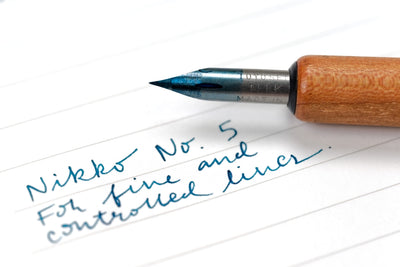 Nikko No. 5
For fine and
controlled lines.